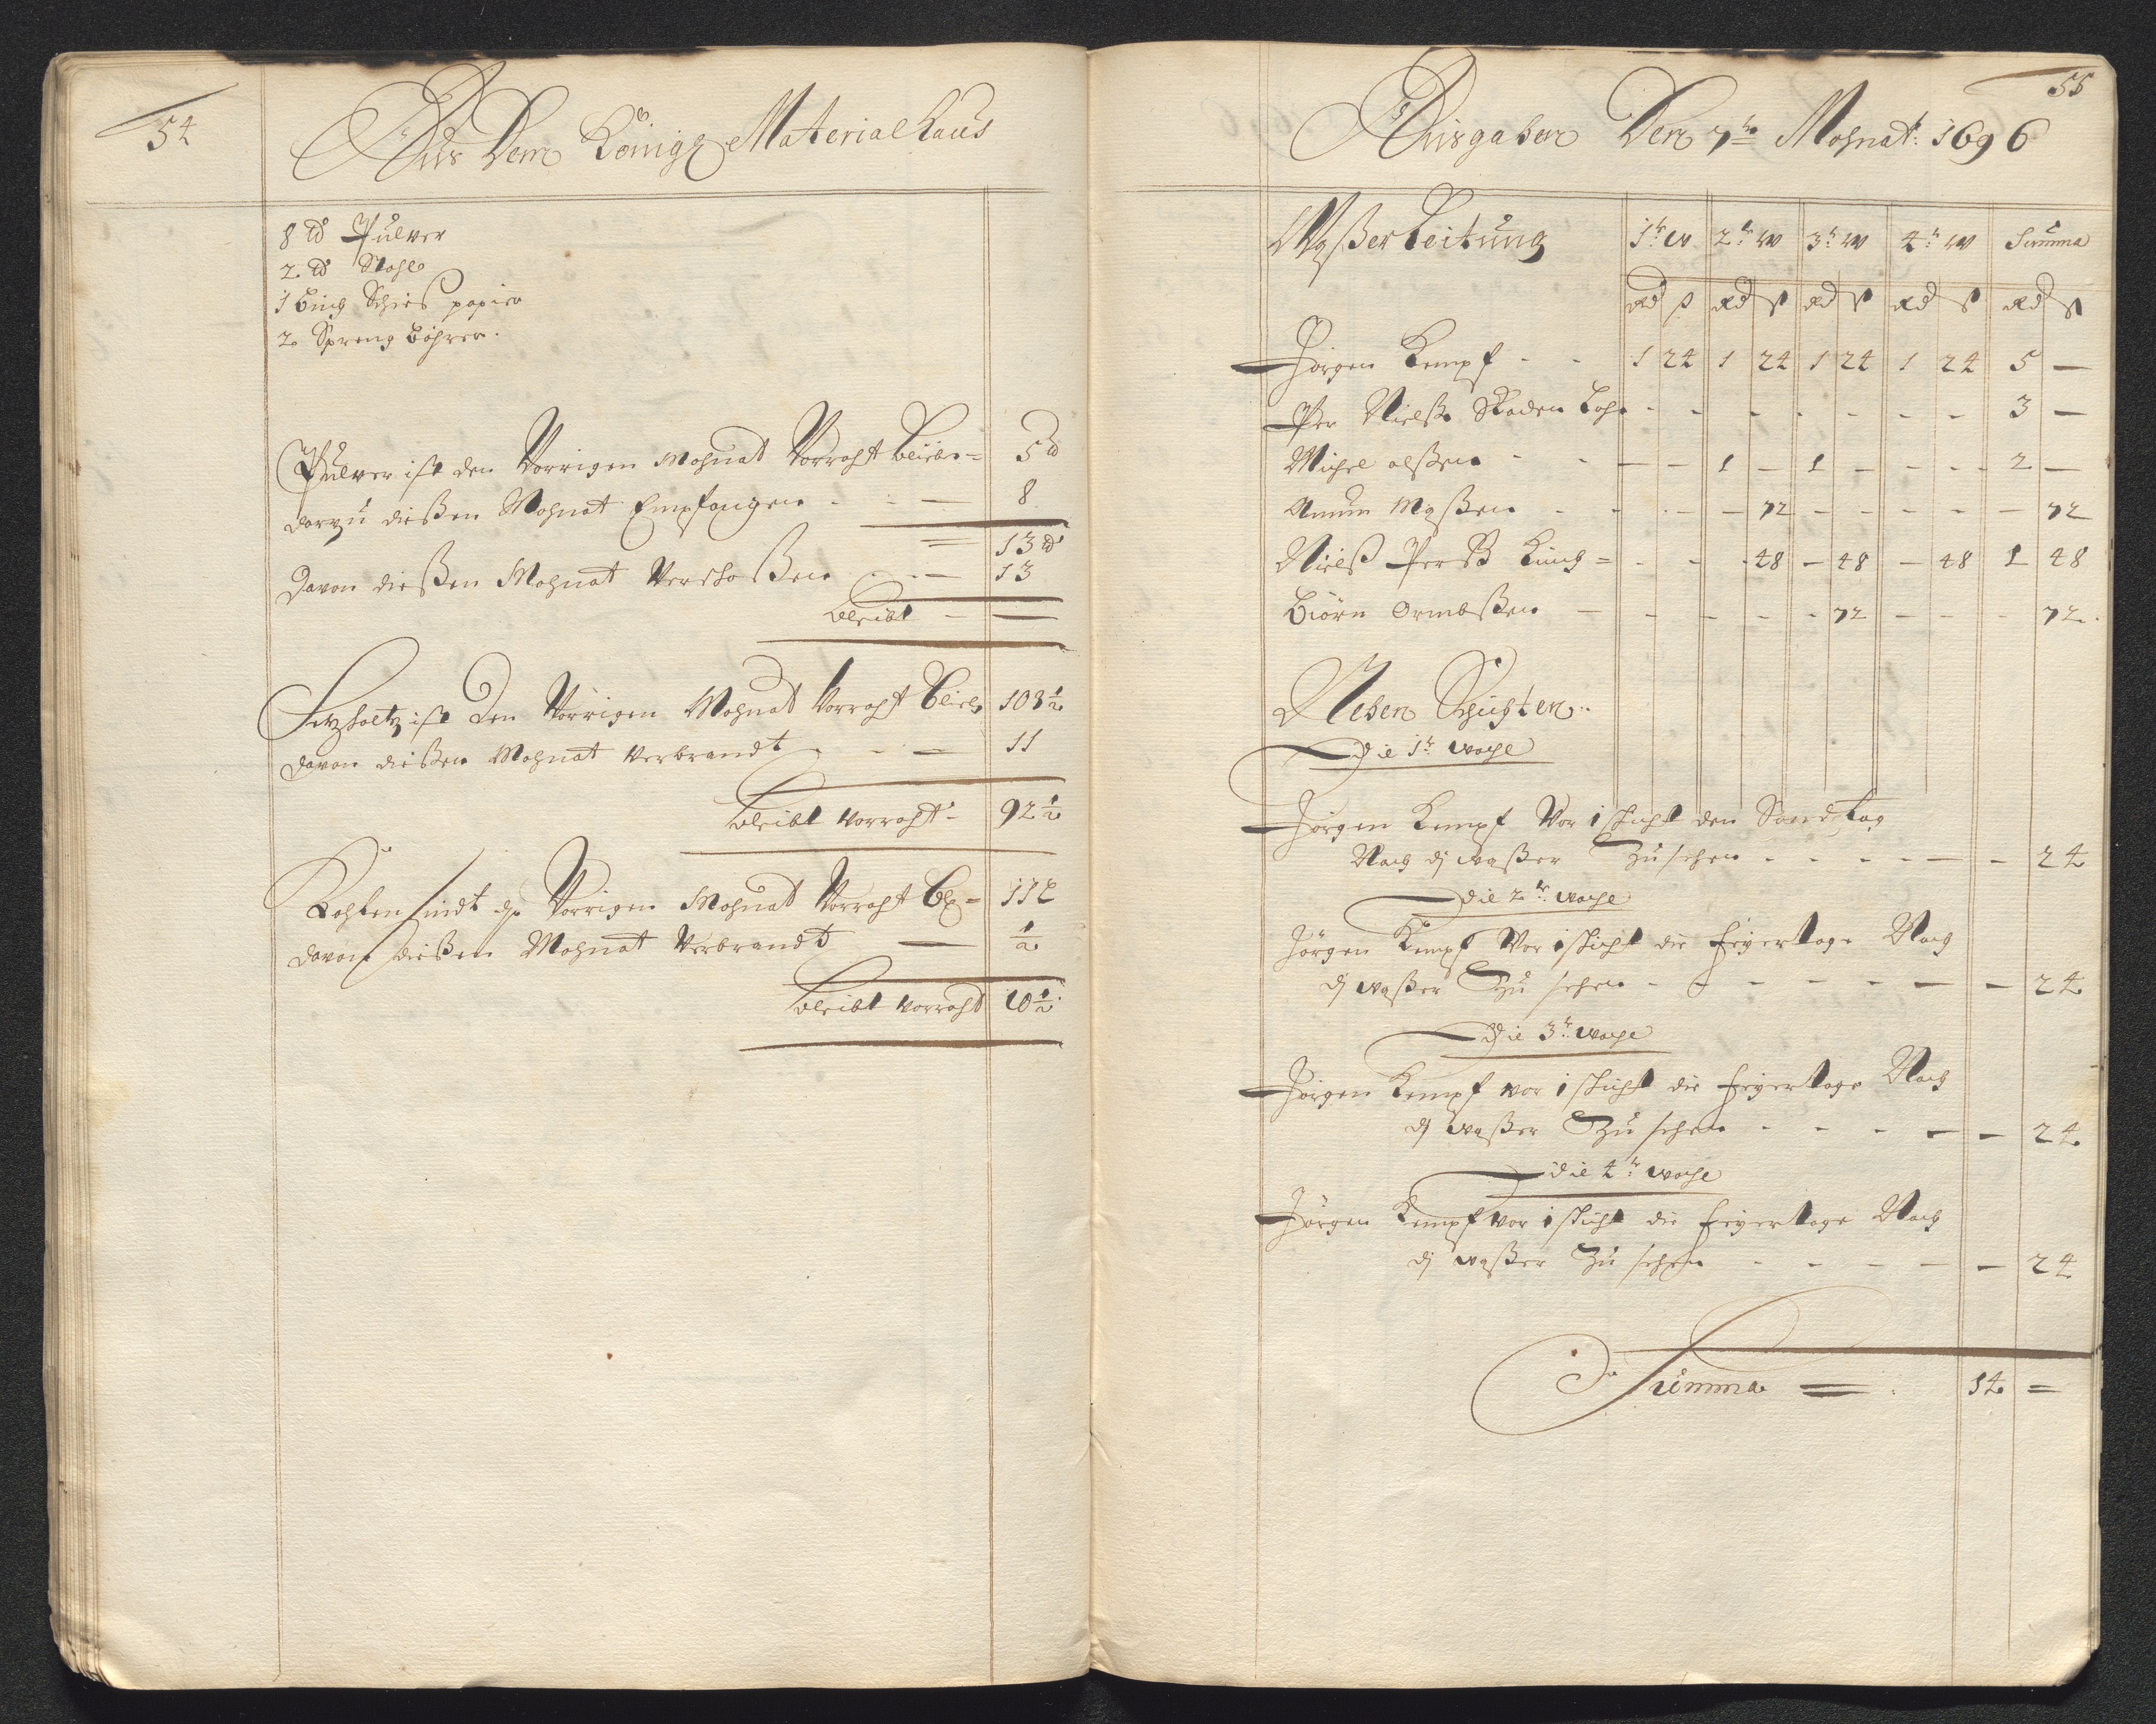 54
Aus Dem Königl Material haus
8 ℔ Pulver
2 ℔ Stahl
1 buch Schies papier
2 Spreng böhrer.
Pulver ist den Vorrigen Mohnat Vorraht blieben = 5 ℔
darzu dießen Mohnat Empfangen - - — 8
13 ℔
Davon dießen Mohnat Verschoßen - - — 13
bleibt - —
Setzholtz ist den Vorrigen Mohnat Vorraht blieb 103½
davon dießen Mohnat verbrandt - - — 11
bleibt vorraht - 92½
Kohlen sindt Vorrigen Mohnat Vorraht bl = 11 L
davon dießen Mohnat Verbrandt — ½
bleibt vorraht 10½
55
Ausgaben Dem 7ten Mohnat: 1696
Waßer Leitung 1te w 2te w 3te w 4te w Summa
Rd ß Rd ß Rd ß Rd ß Rd ß
Jörgen Kempf - - 1 24 1 24 1 24 1 24 5 —
Per Nielß Skaden Lohn - - - - - - - - 3 —
Michel olßen - - — - 1 - 1 - - - - 2 —
Amun Maßen - - - - 72 - - - - - — 72
Nielß Perß King = - - - 48 - 48 - 48 1 48
Biörn ormbßen — - - - - 72 - - - 72.
Neben Schichten..
Die 1te woche
Jörgen Kempf Vor 1 schicht den Sondtag
Nach dz waßer Zu sehen - - - - — - 24
Die 2te woche
Jörgen Kempf Vor 1 schicht die Feyertage Nach
dz waßer Zu sehen - - - - - — - 24
Die 3te woche
Jörgen Kempf vor 1 schicht die feyertage Nach
dz waßer Zu sehen - - - — - 24
Die 4te woche
Jörgen Kempf vor 1 schicht die feyertage Nach
dz waßer Zu sehen - - - — - 24
Summa = 14 =